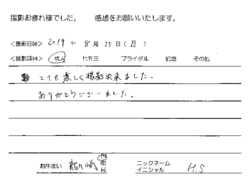 撮影お疲れ様でした。 感想をお願いいたします。
<撮影日時> 2019年 8月 25日(日)
<撮影項目> 成人 七五三 ブライダル 記念 その他
とても楽しく撮影出来ました。
ありがとうございました。
お住まい 龍ヶ崎 ニックネーム
イニシャル H.S